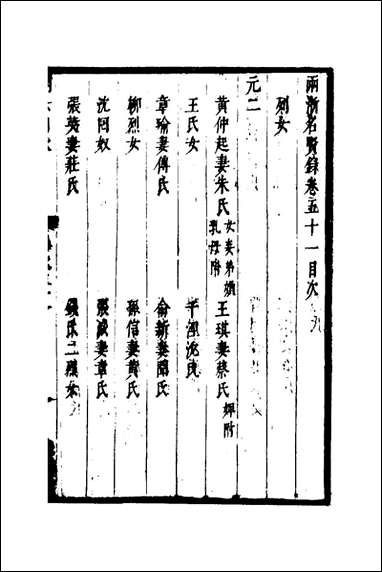 兩浙名賢錄卷五十一目次
列女
元二
黄仲起妻朱氏 女妾弟婦乳母附 王琪妻蔡氏 婢附
王氏女 平江沈氏
章瑜妻傅氏 俞新妻聞氏
柳烈女 孫信妻黄氏
沈囘奴 張誠妻章氏
張英妻莊氏 二孫女